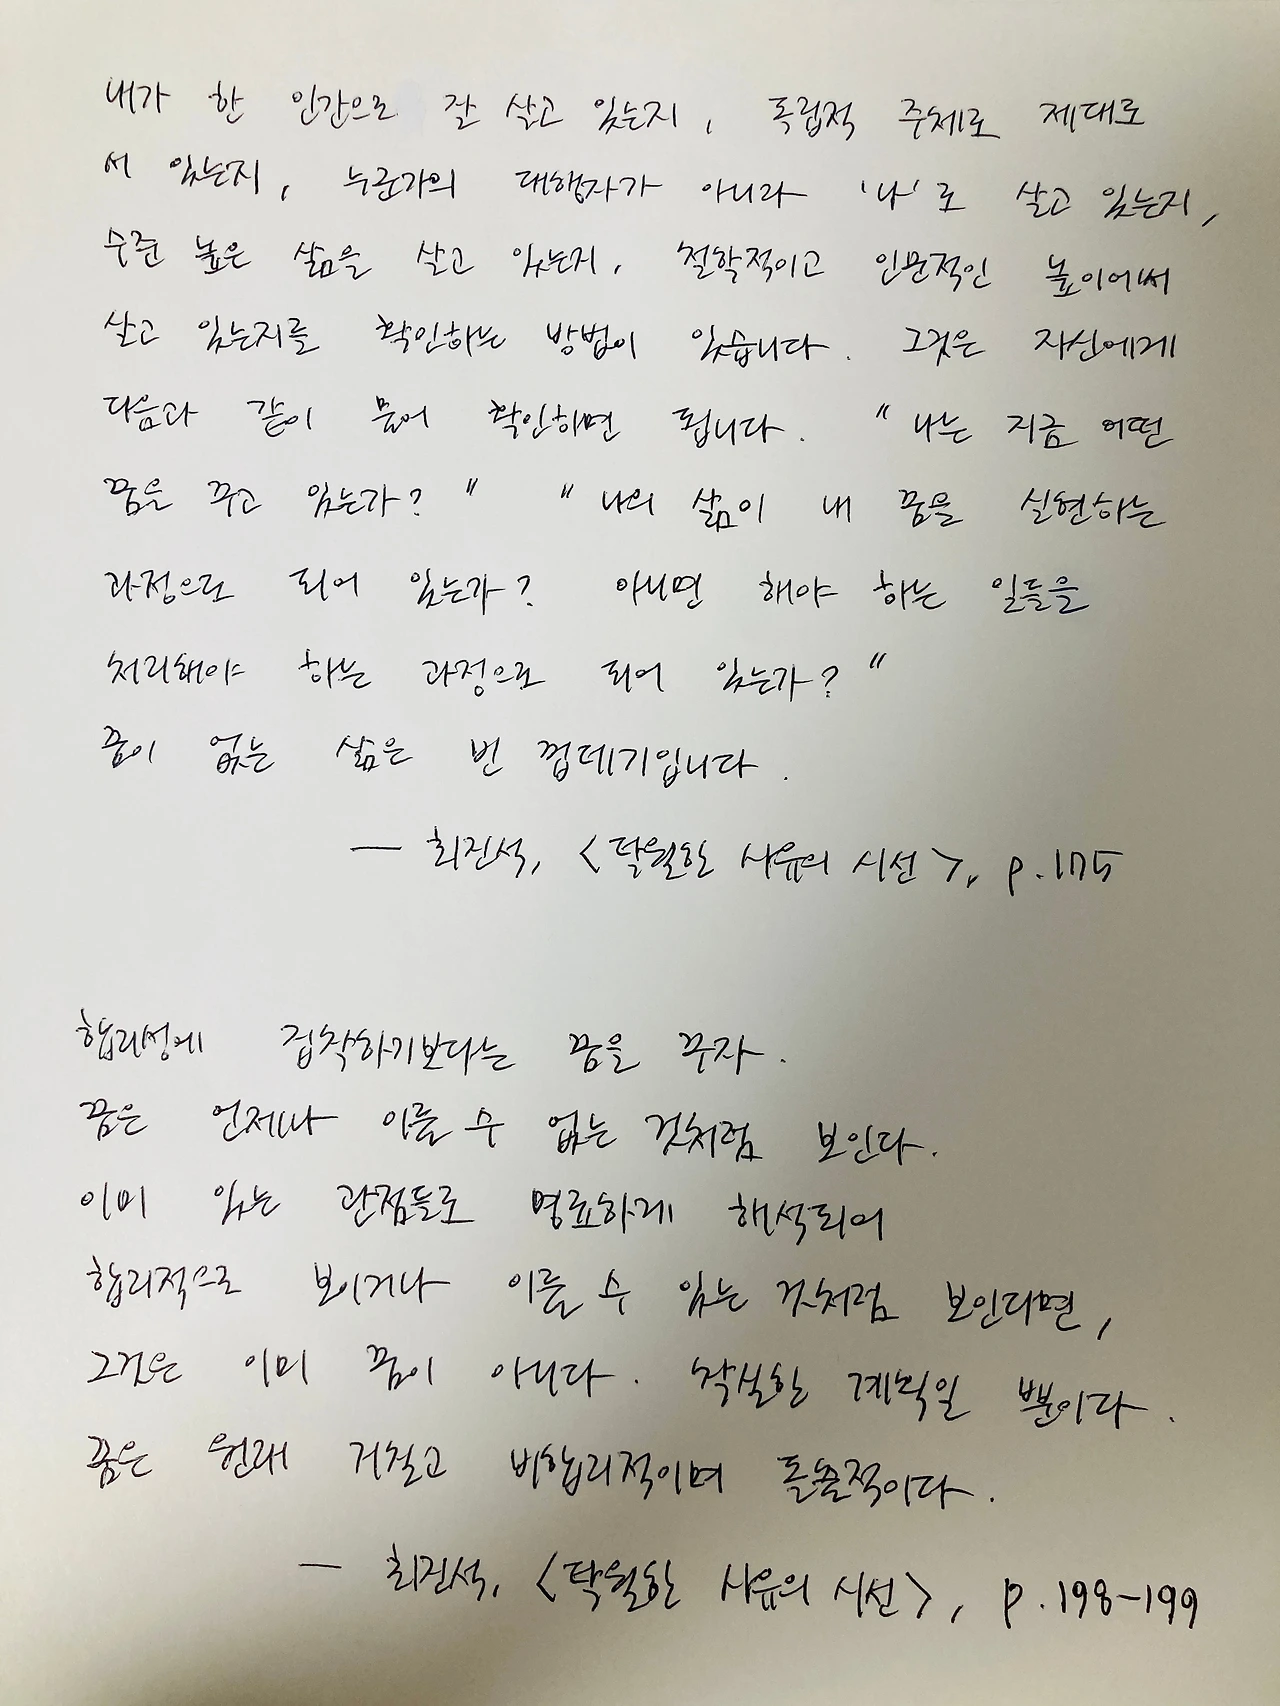 내가 한 인간으로 잘 살고 있는지, 독립적 주체로 제대로
서 있는지, 누군가의 대행자가 아니라 '나'로 살고 있는지,
수준 높은 삶을 살고 있는지, 철학적이고 인문적인 높이에서
살고 있는지를 확인하는 방법이 있습니다. 그것은 자신에게
다음과 같이 물어 확인하면 됩니다. "나는 지금 어떤
꿈을 꾸고 있는가?" "나의 삶이 내 꿈을 실현하는
과정으로 되어 있는가? 아니면 해야 하는 일들을
처리해야 하는 과정으로 되어 있는가?"
꿈이 없는 삶은 빈 껍데기입니다.
— 최진석, <탁월한 사유의 시선>, p.175
합리성에 집착하기보다는 꿈을 꾸자.
꿈은 언제나 이룰 수 없는 것처럼 보인다.
이미 있는 관점들로 명료하게 해석되어
합리적으로 보이거나 이룰 수 있는 것처럼 보인다면,
그것은 이미 꿈이 아니다. 착실한 계획일 뿐이다.
꿈은 원래 거칠고 비합리적이며 돌출적이다.
— 최진석, <탁월한 사유의 시선>, p.198-199